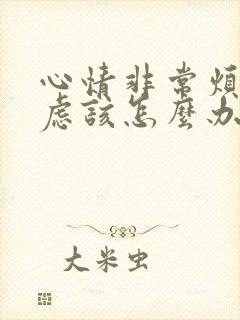 心情非常煩
慮該怎麼办
大米虫